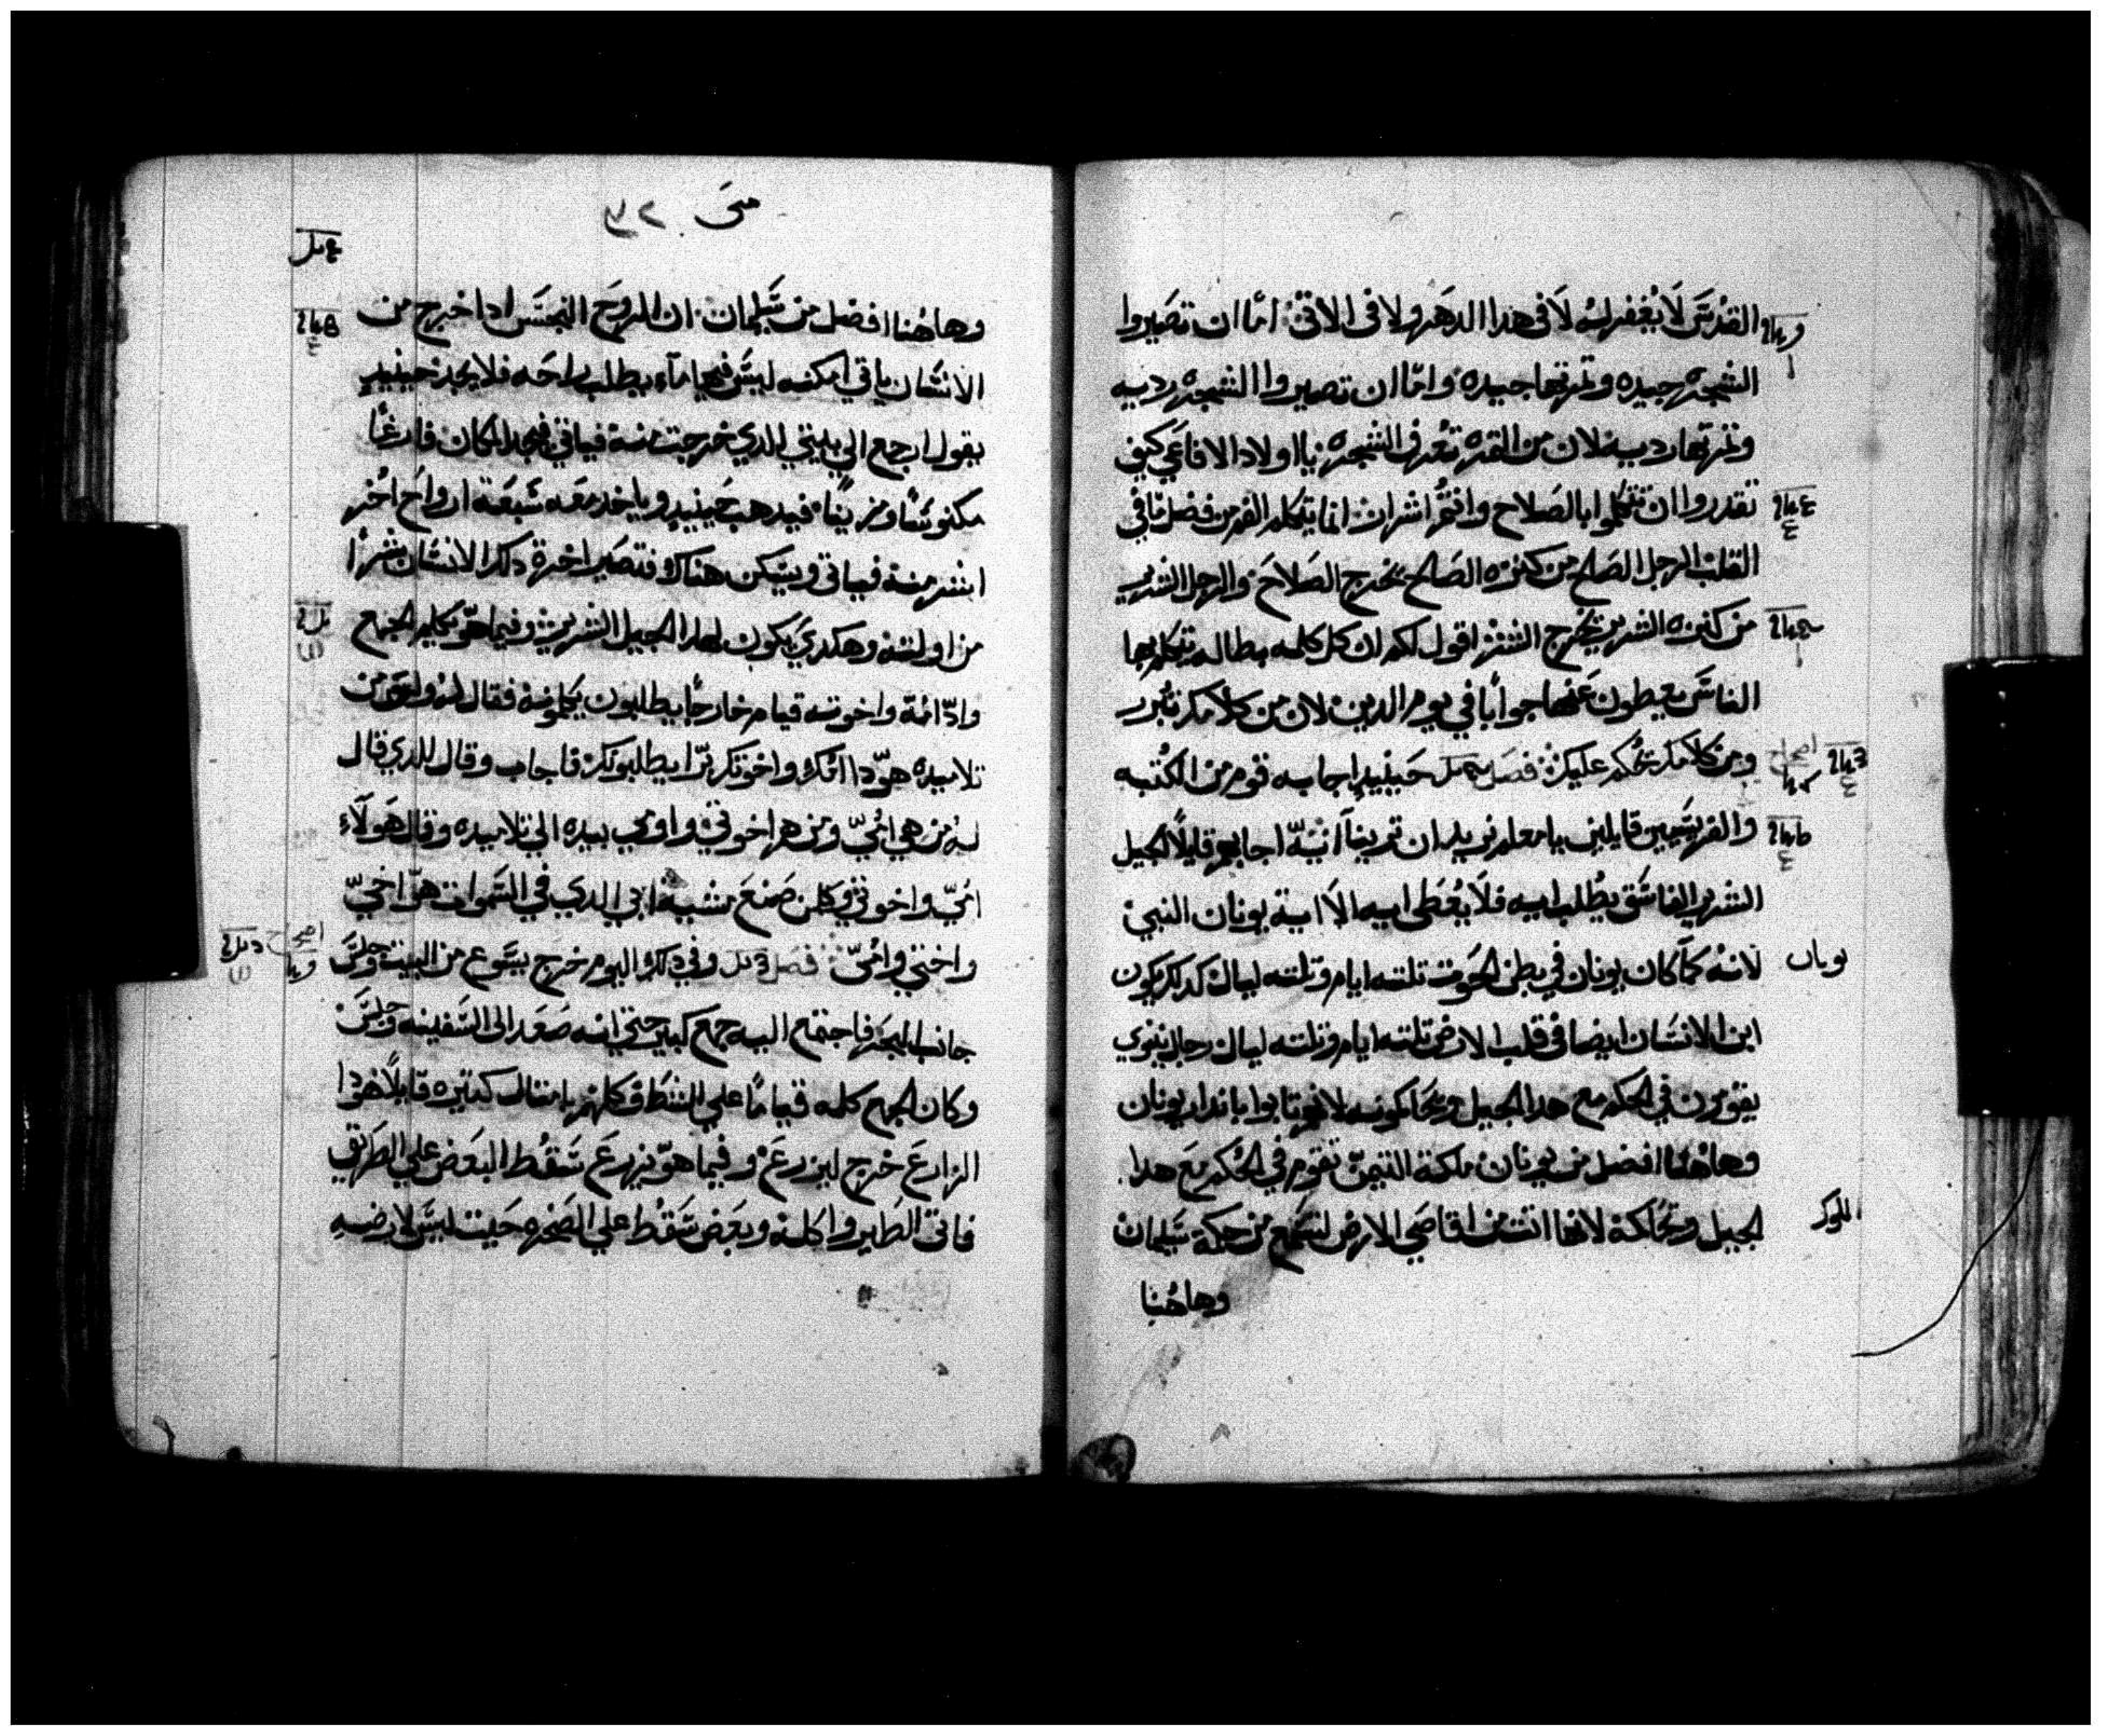 القدُسَ لَا يُغفر لهُ لَا في هدا الدهر ولا في الاتي امّا ان تصَيروا
الشجره جيده وتمرتها جيده وامّا ان تصيروا الشجره رديه
وتمرتها رديه لان من التمره تعُرف الشجره يا اولاد الافاعَي كيف
تقدروا ان تتكلموا بالصَلاح وانتمُ اشرار انما يتكلم الفم من فضل ما في
القلب الرجل الصَالح من كنزه الصَالح يخرج الصَلاحَ والرجل الشرير
من كنزه الشرير يخُرج الشر اقول لكم ان كل كلمه بطاله يتكلم بها
الناسَ يعطون عَنها جوابًا في يوم الدين لان من كلامك تبُرر
ومن كلامك يحُكم عليك فصَل حَينيدٍ اجابه قوم من الكتبه
والفريسَيين قايلين يا معلم نريد ان ترينآ ايَهّ اجابهم قايلًا الجيل
الشرير الفاسَق يطُلب ايه فلَا يعُطَى ايه الاَ اية يونان النبي
لانهُ كمآ كان يونان في بطن الحَوت تلته ايام وتلته ليال كدلك يكون
ابن الانسَان ايضا في قلب الارض تلته ايام وتلته ليال رجال نينوي
يقومون في الحكم مع هدا الجيل ويحَاكمونه لانهم تابوا باندار يونان
وهاهُنا افضل من يونان ملكة التيمن تقوم في الحُكم مَع هدا
الجيل وتحُاكمهُ لانها اتت من اقاصَي الارض لتسَمع من حكمة سَليمان
وهاهُنا
يونان
الملوك
متىَ ٣٢
وهاهُنا افضل من سَليمان ان الروحَ النجسَ ادا خرج من
الانسَان ياتي امكنه ليسَ فيها مآء يطلب راحَه فلا يجد حينيدٍ
يقول ارجع الي بيتي الدي خرجت منهُ فياتي فيجد المكان فارغاً
مكنوسًا ومزيناً فيدهب حَينيدٍ وياخد معَه سَبعَة ارواحَ اخُر
اشر منهُ فياتي ويسَكن هناك فتصَير اخرة دلك الانسَان شرًا
من اولته وهكدي يكون لهدا الجيل الشرير وفيما هوّ يكلم الجمع
وادّا امهُ واخوته قيام خارجًا يطلبون يكلمونهُ فقال لهُ واحَد من
تلاميده هوّدا امُك واخوتك برّا يطلبونك فاجاب وقال للدي قال
لهُ من هي امُيّ ومن هم اخوتي واومي بيده الي تلاميده وقال هَولَاءِ
امُيّ واخوتي وكلمن صَنعَ مشية ابي الدي في السَموات هوّ اخيّ
واختي وامُيّ فصَل وفي دلك اليوم خرَج يسَوع من البيت وجلسَ
جانب البحَر فاجتمع اليه جمع كبير حتي انه صَعَد الى السَفينه وجلسَ
وكان الجمع كله قيامًا علي الشط فكلهم بامتال كتيره قايلاً هودا
الزارعَ خرج ليزرعَ وفيما هوّ يزرعَ سَقُط البعَض علي الطَريق
فاتى الطَير واكلهُ وبعَض سَقطُ علي الصَخره حَيت ليسَ لا رضهِ